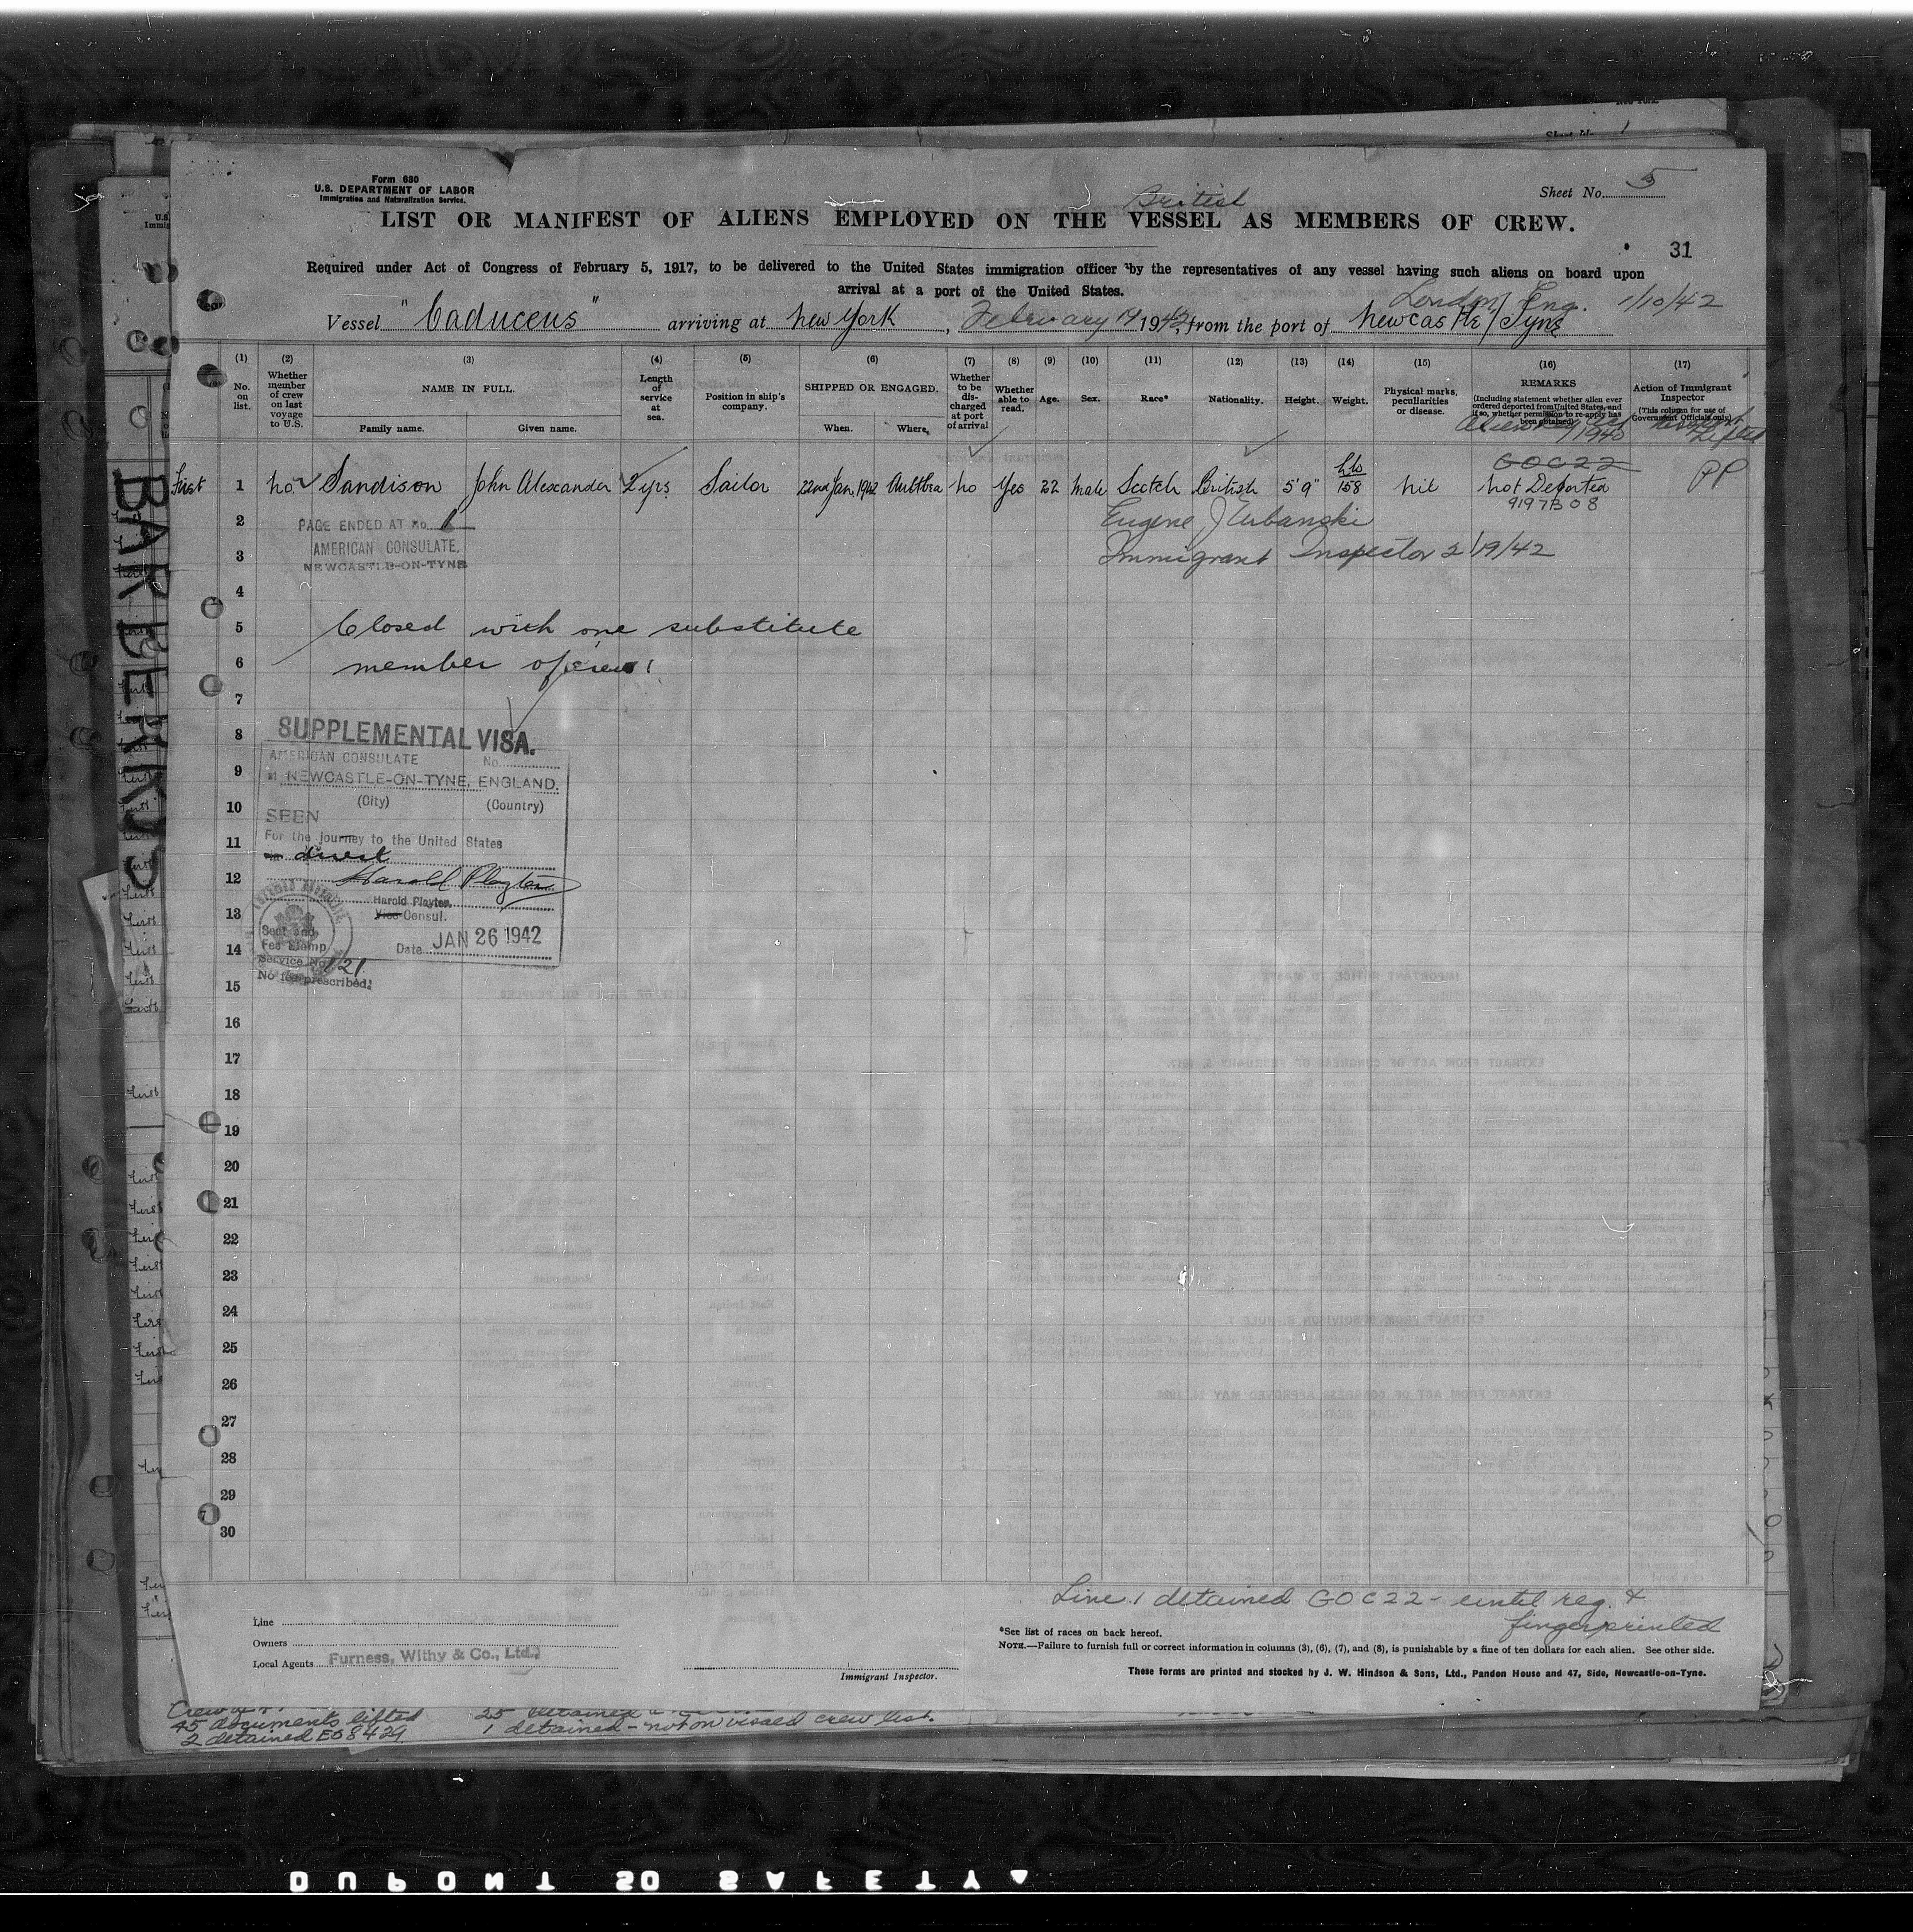 Form 680
U.S. DEPARTMENT OF LABOR
Immigration and Naturalization Service.
Sheet No. 5
British
LIST OR MANIFEST OF ALIENS EMPLOYED ON THE VESSEL AS MEMBERS OF CREW.
31
Required under Act of Congress of February 5, 1917, to be delivered to the United States immigration officer by the representatives of any vessel having such aliens on board upon
arrival at a port of the United States.
London Eng. 1/10/42
Vessel "Caduceus" arriving at New York, February 19 1942, from the port of Newcastle/Tyne
(1) (2) (3) (4) (5) (6) (7) (8) (9) (10) (11) (12) (13) (14) (15) (16) (17)
No. on list.
Whether member of crew on last voyage to U.S.
NAME IN FULL.
Family name. Given name.
Length of service at sea.
Position in ship's company.
SHIPPED OR ENGAGED.
When. Where.
Whether to be discharged at port of arrival
Whether able to read.
Age.
Sex.
Race*
Nationality.
Height.
Weight.
Physical marks, peculiarities or disease.
REMARKS
(Including statement whether alien ever ordered deported from United States, and if so, whether permission to re-apply has been obtained)
Action of Immigrant Inspector
(This column for use of Government Officials only)
1940
Lifted
GOC22
First 1 no Sandison John Alexander 2 yrs Sailor 22nd Jan, 1942 no Yes 22 Male Scotch British 5'9" lbs 158 nil Not Deported PP
9197B08
2
PAGE ENDED AT No. 1
AMERICAN CONSULATE,
NEWCASTLE-ON-TYNE
Eugene J Urbanski
3
Immigrant Inspector 2/19/42
4
5 Closed with one substitute
6 member of crew
7
8
SUPPLEMENTAL VISA.
AMERICAN CONSULATE No.
9
at NEWCASTLE-ON-TYNE, ENGLAND.
(City) (Country)
10
SEEN
11
For the journey to the United States
direct
12
Harold Playter
Harold Playter,
13
Vice Consul.
Seal and
Fee Stamp
14
Date JAN 26 1942
Service No. 121
No fee prescribed.
15
16
17
18
19
20
21
22
23
24
25
26
27
28
29
30
Line 1 detained GOC22 - until reg. &
fingerprinted
Line
Owners
Local Agents Furness, Withy & Co., Ltd.
Immigrant Inspector.
*See list of races on back hereof.
NOTE.—Failure to furnish full or correct information in columns (3), (6), (7), and (8), is punishable by a fine of ten dollars for each alien. See other side.
These forms are printed and stocked by J. W. Hindson & Sons, Ltd., Pandon House and 47, Side, Newcastle-on-Tyne.
45 documents lifted
2 detained E08429
25 detained
1 detained - not on visaed crew list.
DUPONT SO SAFETY